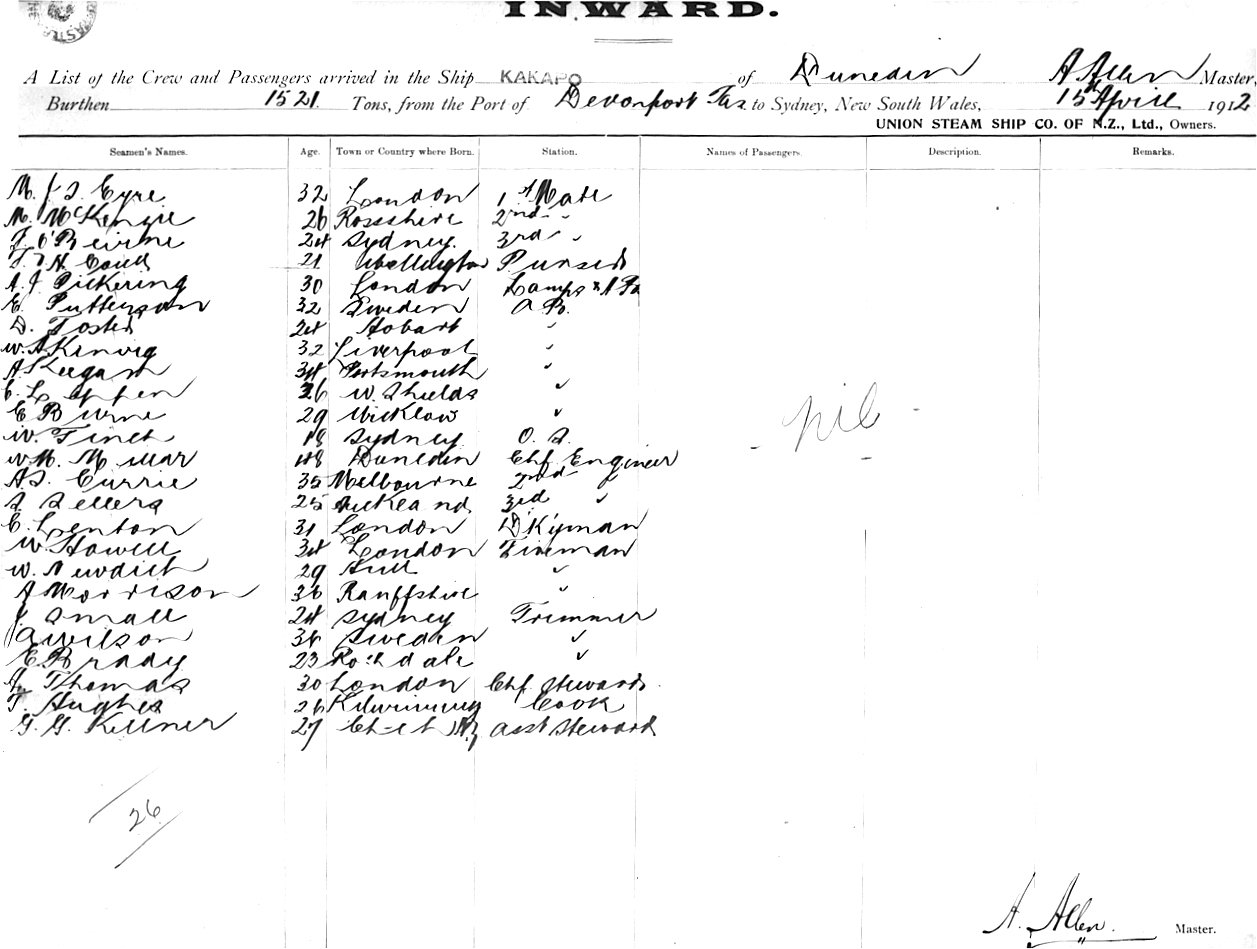 INWARD.
A List of the Crew and Passengers arrived in the Ship KAKAPO of Dunedin A Allen Master,
Burthen 1521 Tons, from the Port of Devonport Tas to Sydney, New South Wales, 15th April 1912
UNION STEAM SHIP CO. OF N.Z., Ltd., Owners.
Seamen's Names. Age. Town or Country where Born. Station. Names of Passengers. Description. Remarks.
M. J. S. Eyre 32 London 1st Mate
M. McKenzie 26 Rossshire 2nd "
F. O'Beirne 24 Sydney. 3rd "
21 Wellington Purser
A. J. Pickering 30 London Lamps &
E. Putterson 32 Sweden A B.
D. Foster 24 Hobart "
W. A Kinvig 32 Liverpool "
A Keegan 34 Portsmouth "
C. Leppen 26 W. Shields "
E Burne 29 Wicklow "
W. Finch 18 Sydney O. S.
W. M. Millar 48 Dunedin Chf Engineer
A. S. Currie 35 Melbourne 2nd "
S Sellers 25 Auckland 3rd "
C. Lenton 31 London D'Kyman
W. Howell 34 London Fireman
W. Newditt 29 Hull "
A Morrison 36 Banffshire "
J Small 24 Sydney Trimmer
A Wilson 36 Sweden "
E Brady 23 Rochdale "
Thomas 30 London Chf Steward
T. Hughes 26 Kilwinning Cook
G. G. Kellner 27 Ch-ch N.Z asst Steward
- nil -
26
A. Allen. Master.